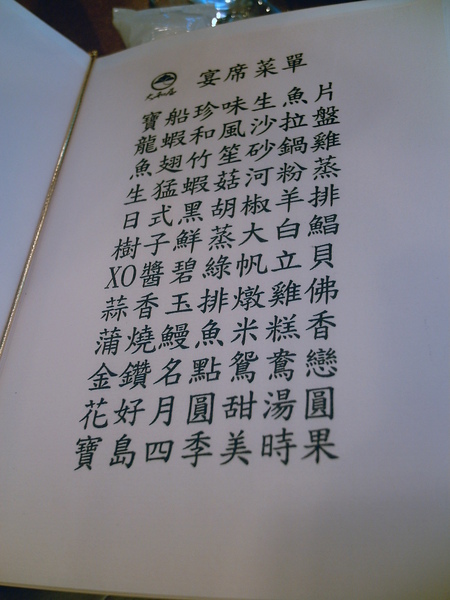 宴席菜單
寶船珍味生魚片
龍蝦和風沙拉盤
魚翅竹笙砂鍋雞
生猛蝦菇河粉蒸
日式黑胡椒羊排
樹子鮮蒸大白鯧
XO醬碧綠帆立貝
蒜香玉排燉雞佛
蒲燒鰻魚米糕香
金鑽名點鴛鴦戀
花好月圓甜湯圓
寶島四季美時果